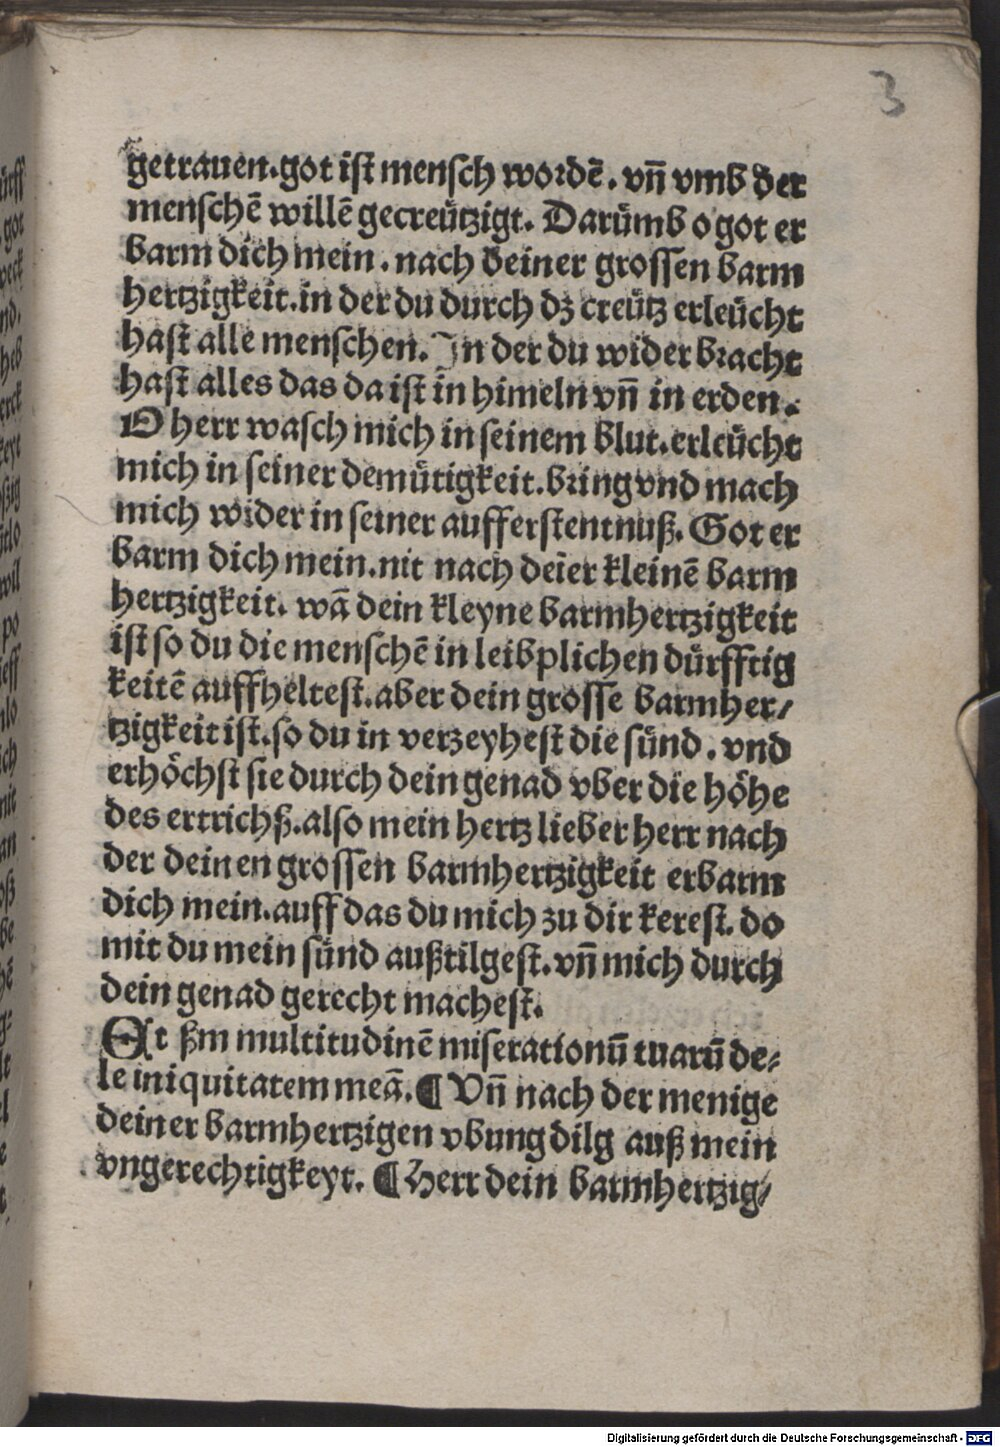 3
getrauen.got ist mensch wordē. vñ vmb der
menschē willē gecreützigt. Darümb o got er
barm dich mein. nach deiner grossen barm
hertzigkeit.in der du durch dz creütz erleücht
hast alle menschen. In der du wider bracht
hast alles das da ist in himeln vñ in erden.
O herr wasch mich in seinem blut.erleücht
mich in seiner demütigkeit.bring vnd mach
mich wider in seiner aufferstentnuß. Got er
barm dich mein.nit nach deīer kleinē barm
hertzigkeit. wā dein kleyne barmhertzigkeit
ist so du die menschē in leibplichen dürfftig
keitē auffheltest.aber dein grosse barmher/
tzigkeit ist.so du in verzeyhest die sünd. vnd
erhöchst sie durch dein genad vber die höhe
des ertrichß.also mein hertz lieber herr nach
der deinen grossen barmhertzigkeit erbarm
dich mein.auff das du mich zu dir kerest. do
mit du mein sünd außtilgest.vñ mich durch
dein genad gerecht machest.
Et ßm multitudinē miserationū tuarū de⸗
le iniquitatem meā. ¶ Vñ nach der menige
deiner barmhertzigen vbung dilg auß mein
vngerechtigkeyt. ¶ Herr dein barmhertzig/
Digitalisierung gefördert durch die Deutsche Forschungsgemeinschaft - DFG